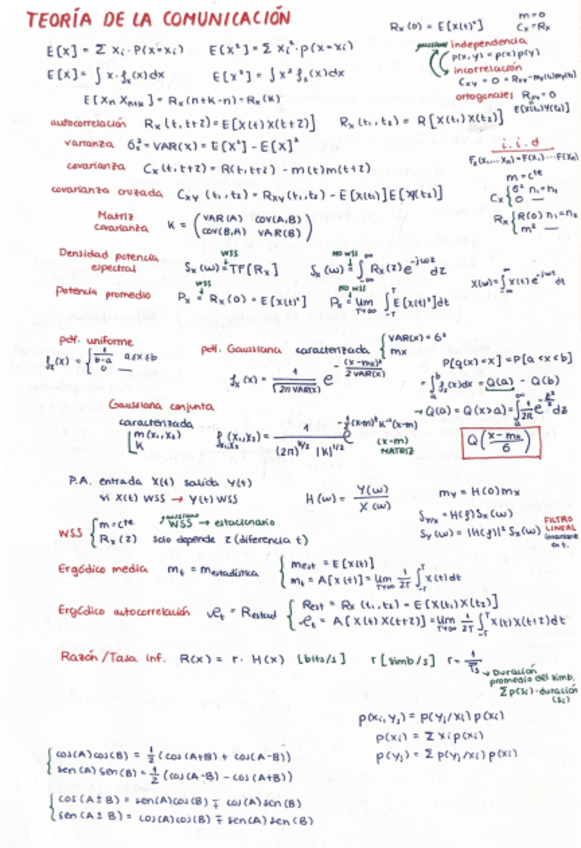 TEORÍA DE LA COMUNICACIÓN
Rx(0) = E[X(t)²]
m=0
Cx = Rx
E[X] = Σ xi · P(X=xi) E[X²] = Σ xi² · p(x=xi)
gaussiana independencia
p(x,y) = p(x)p(y)
E[X] = ∫ x · fx(x)dx E[X²] = ∫ x² fx(x)dx
incorrelación
Cxy = 0 = Rxy - mx(t1)my(t2)
E[Xn Xn+k] = Rx(n+k-n) = Rx(k)
ortogonales Rxy = 0
E[X(t1)Y(t2)]
autocorrelación Rx(t, t+z) = E[X(t)X(t+z)] Rx(t1, t2) = R[X(t1)X(t2)]
varianza 6x² = VAR(X) = E[X²] - E[X]²
i.i.d
Fx(x1,... xn) = F(x1)... F(xn)
covarianza Cx(t, t+z) = R(t, t+z) - m(t)m(t+z)
m = cte
Cx { 6² n1 = n2
0 —
covarianza cruzada Cxy (t1, t2) = Rxy(t1, t2) - E[X(t1)]E[Y(t2)]
Rx { R(0) n1 = n2
m² —
Matriz covarianza K = ( VAR(A) COV(A,B)
COV(B,A) VAR(B) )
Densidad potencia espectral WSS Sx(w) = TF[Rx] NO WSS Sx(w) = ∫ Rx(z) e^-jwz dz
X(w) = ∫ x(t) e^-jwt dt
Potencia promedio WSS Px = Rx(0) = E[X(t)²] NO WSS Px = lim T→∞ ∫ E[X(t)²]dt
pdf. uniforme
fx(x) = { 1/b-a a≤x≤b
0 —
pdf. Gaussiana caracterizada { VAR(X) = 6²
mx
fx(x) = 1/√2π VAR(X) e^-(x-mx)²/2VAR(X)
P[g(x) = x] = P[a<x<b]
= ∫ fx(x)dx = Q(a) - Q(b)
→ Q(a) = Q(x>a) = ∫ 1/√2π e^-z²/2 dz
Q(x-mx/6)
Gaussiana conjunta
caracterizada
[ m(x1, x2)
K
f(x1, x2) = 1/(2π)^n/2 |K|^1/2 e^-½(x-m)ᵗ K⁻¹ (x-m)
(x-m) MATRIZ
P.A. entrada X(t) salida Y(t)
si X(t) WSS → Y(t) WSS
H(w) = Y(w)/X(w)
my = H(0)mx
Syx = H(f)Sx(w)
Sy(w) = |H(f)|² Sx(w)
FILTRO LINEAL invariante en t.
WSS { m = cte
Rx(z) solo depende z (diferencia t)
gaussiano WSS → estacionario
Ergódico media mt = mestadística { mest = E[X(t)]
mt = A[X(t)] = lim T→∞ 1/2T ∫ X(t)dt
Ergódico autocorrelación Rt = Restad { Rest = Rx(t1, t2) = E[X(t1)X(t2)]
Rt = A[X(t)X(t+z)] = lim T→∞ 1/2T ∫ X(t)X(t+z)dt
Razón/Tasa inf. R(x) = r · H(x) [bits/s] r [simb/s] r = 1/Ts
→ Duración promedio del simb.
Σ p(si) · duración (si)
p(xi, yj) = p(yj/xi) p(xi)
p(xi) = Σ xi p(xi)
p(yj) = Σ p(yj/xi) p(xi)
{ cos(A)cos(B) = ½ (cos(A+B) + cos(A-B))
sen(A)sen(B) = ½ (cos(A-B) - cos(A+B))
{ cos(A±B) = sen(A)cos(B) ∓ cos(A)sen(B)
sen(A±B) = cos(A)cos(B) ∓ sen(A)sen(B)